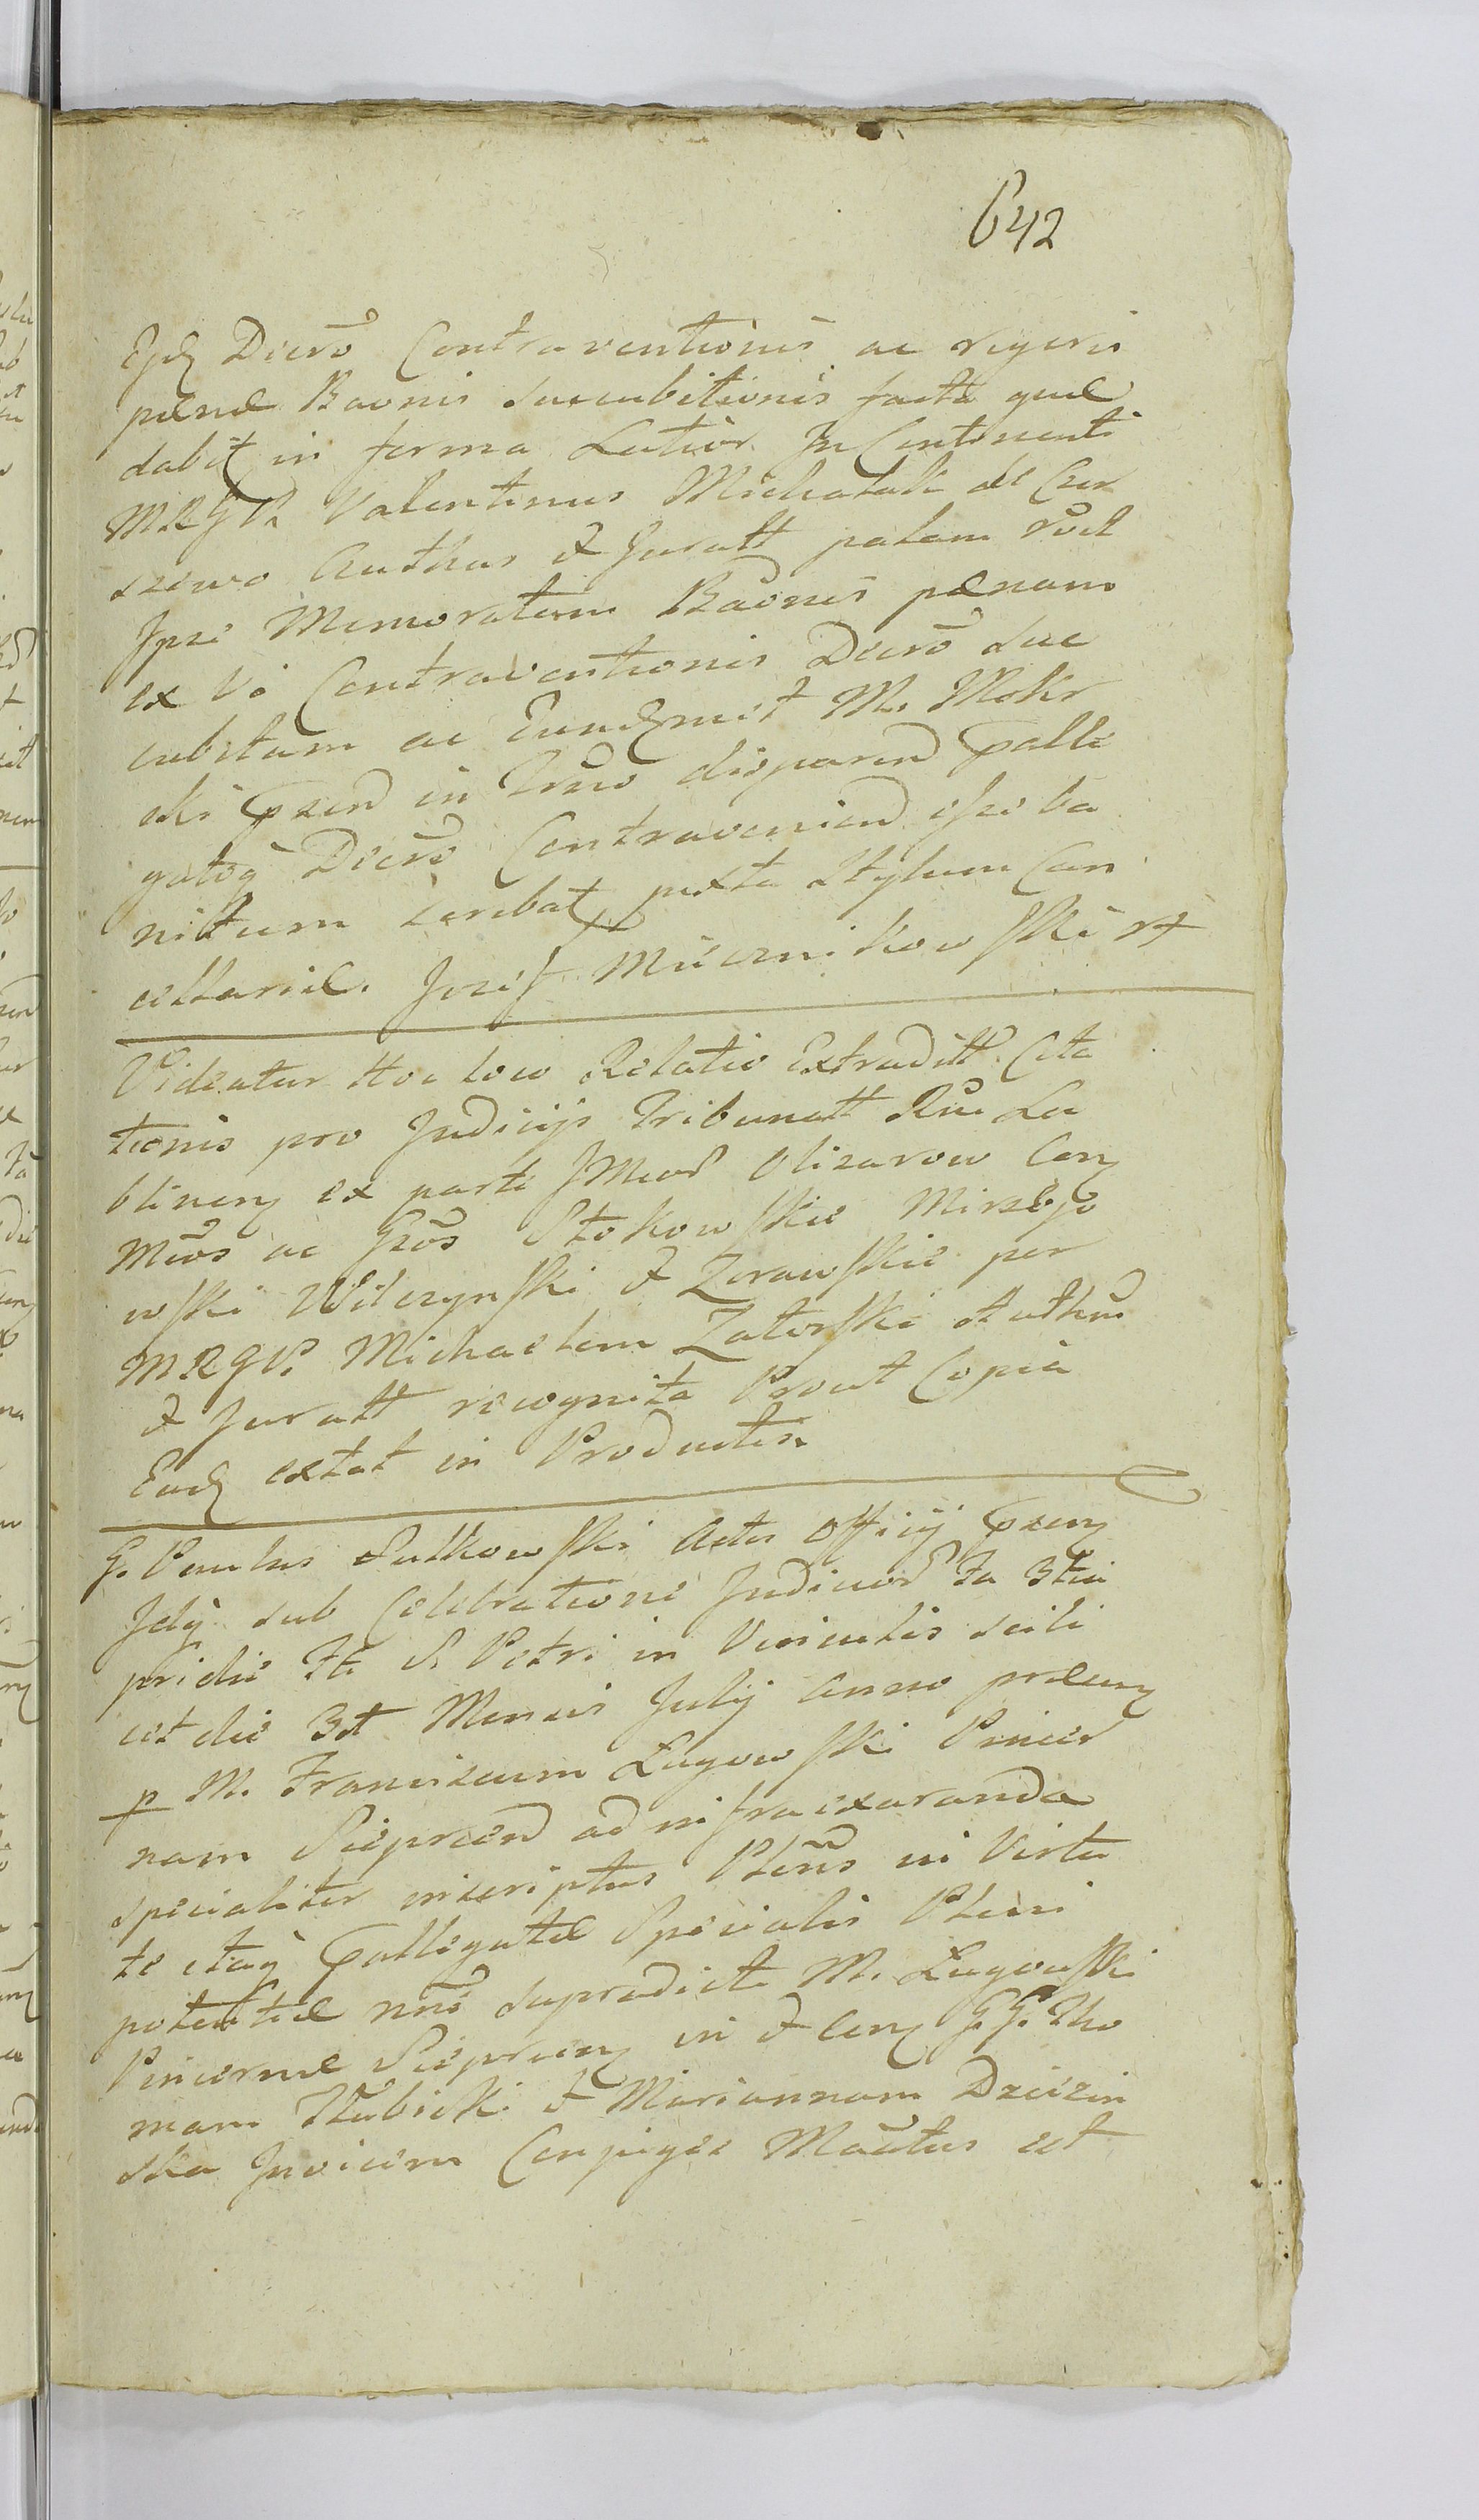 642
Ejd Decro Contraventionis ac rigoris
pænæ Baonis succubitionis facta quæ
dabit in forma Latior In Continenti
MRGP. Valentinus Michalak de Czer
szewo Authus & Juratt palam
Ipse Memoratam Baonis pænam
ex Vi Contraventionis Decro suc
cubitum ac M. Mokr
ski in disparend
gatoq Decro Contraveniend esse ba
nitum juxta Stylum Can
cellariæ. Jozef Miecznikowski
Videatur Hoc loco Relatio Extraditt Cita
tionis pro Judicijs Tribunatt Lu
blinen ex parte Olizarow Con
Mcos ac Gsos Stokowskie Mirzejo
wski Wilczynski & Zorawskie per
MRGP. Michaelem Zatorski Authu
& Juratt recognita Prout Copia
Ead extat in Productis
G. Paulus Sulkowski Actis Officij
Idq sub Celebratione Judicior
pridie S. Petri in Vinculis scili
cet die 31 Mensis Julij Anno præsen
p M. Franciscum Łagowski Pincer
nam Sieprcen ad infra exaranda
specialiter inscriptus Plens in Virtu
te itaq specialis Pleni
potentiæ supradicti M. Łagowski
Pincernæ Sieprcen in & Con G.G. Tho
mam & Mariannam Dzieżin
ska Invicem Conjuges Mautus est